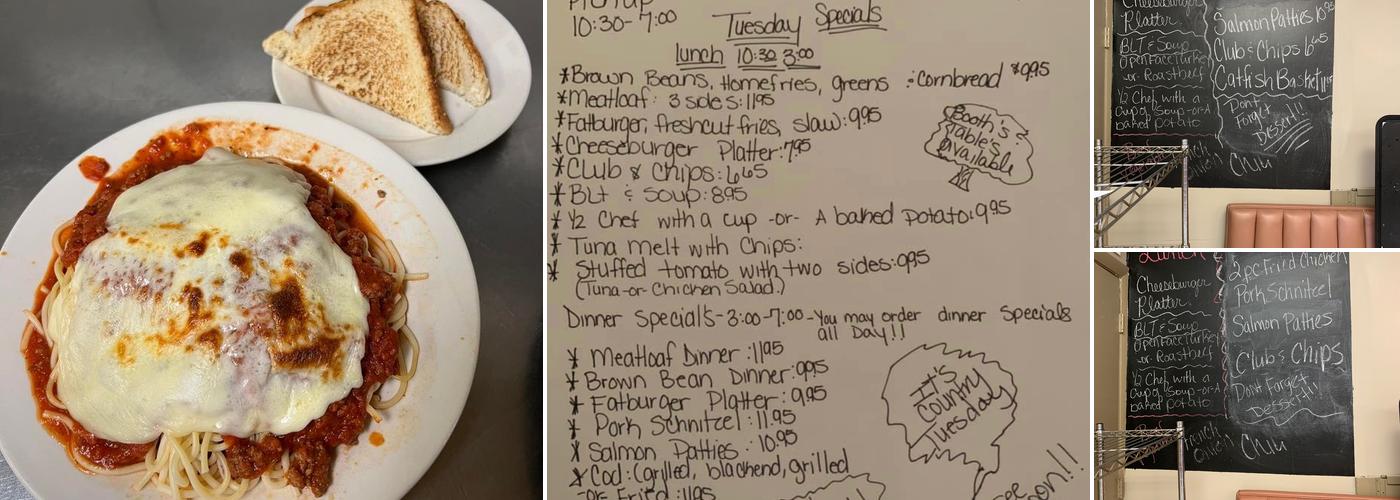 10:30-7:00
Tuesday Specials
lunch 10:30 3:00
*Brown Beans, Homefries, greens : Cornbread $9.95
*Meatloaf: 3 sides: 11.95
*Fatburger, freshcut fries, slaw: 9.95
*Cheeseburger Platter: 7.95
*Club & Chips: 6.65
*BLT & Soup: 8.95
* 1/2 Chef with a cup -or- A baked potato: 9.95
* Tuna melt with Chips:
* Stuffed tomato with two sides: 9.95
(Tuna-or Chicken Salad.)
Booth's &
Table's
Available
Dinner Special's-3:00-7:00-You may order dinner specials
all Day!!
* Meatloaf Dinner: 11.95
* Brown Bean Dinner: 9.95
* Fatburger Platter: 9.95
* Pork Schnitzel: 11.95
* Salmon Patties: 10.95
* Cod: (grilled, blackend, grilled
-or Fried: 11.95
It's
Country
Tuesday
see
soon!!
Cheeseburger
Platter
BLT & Soup
Open Face Turkey
-or- Roastbeef
1/2 Chef with a
Cup of Soup-or-A
baked Potato
Salmon Patties 10.95
Club & Chips 6.65
Catfish Basket
Don't
Forget
Dessert!!
Lunch
Cheeseburger
Platter
BLT & Soup
Open Face Turkey
-or- Roastbeef
1/2 Chef with a
Cup of Soup-or-A
baked Potato
2pc Fried Chicken
Pork Schnitzel
Salmon Patties
Club & Chips
Don't Forget
Dessert!!